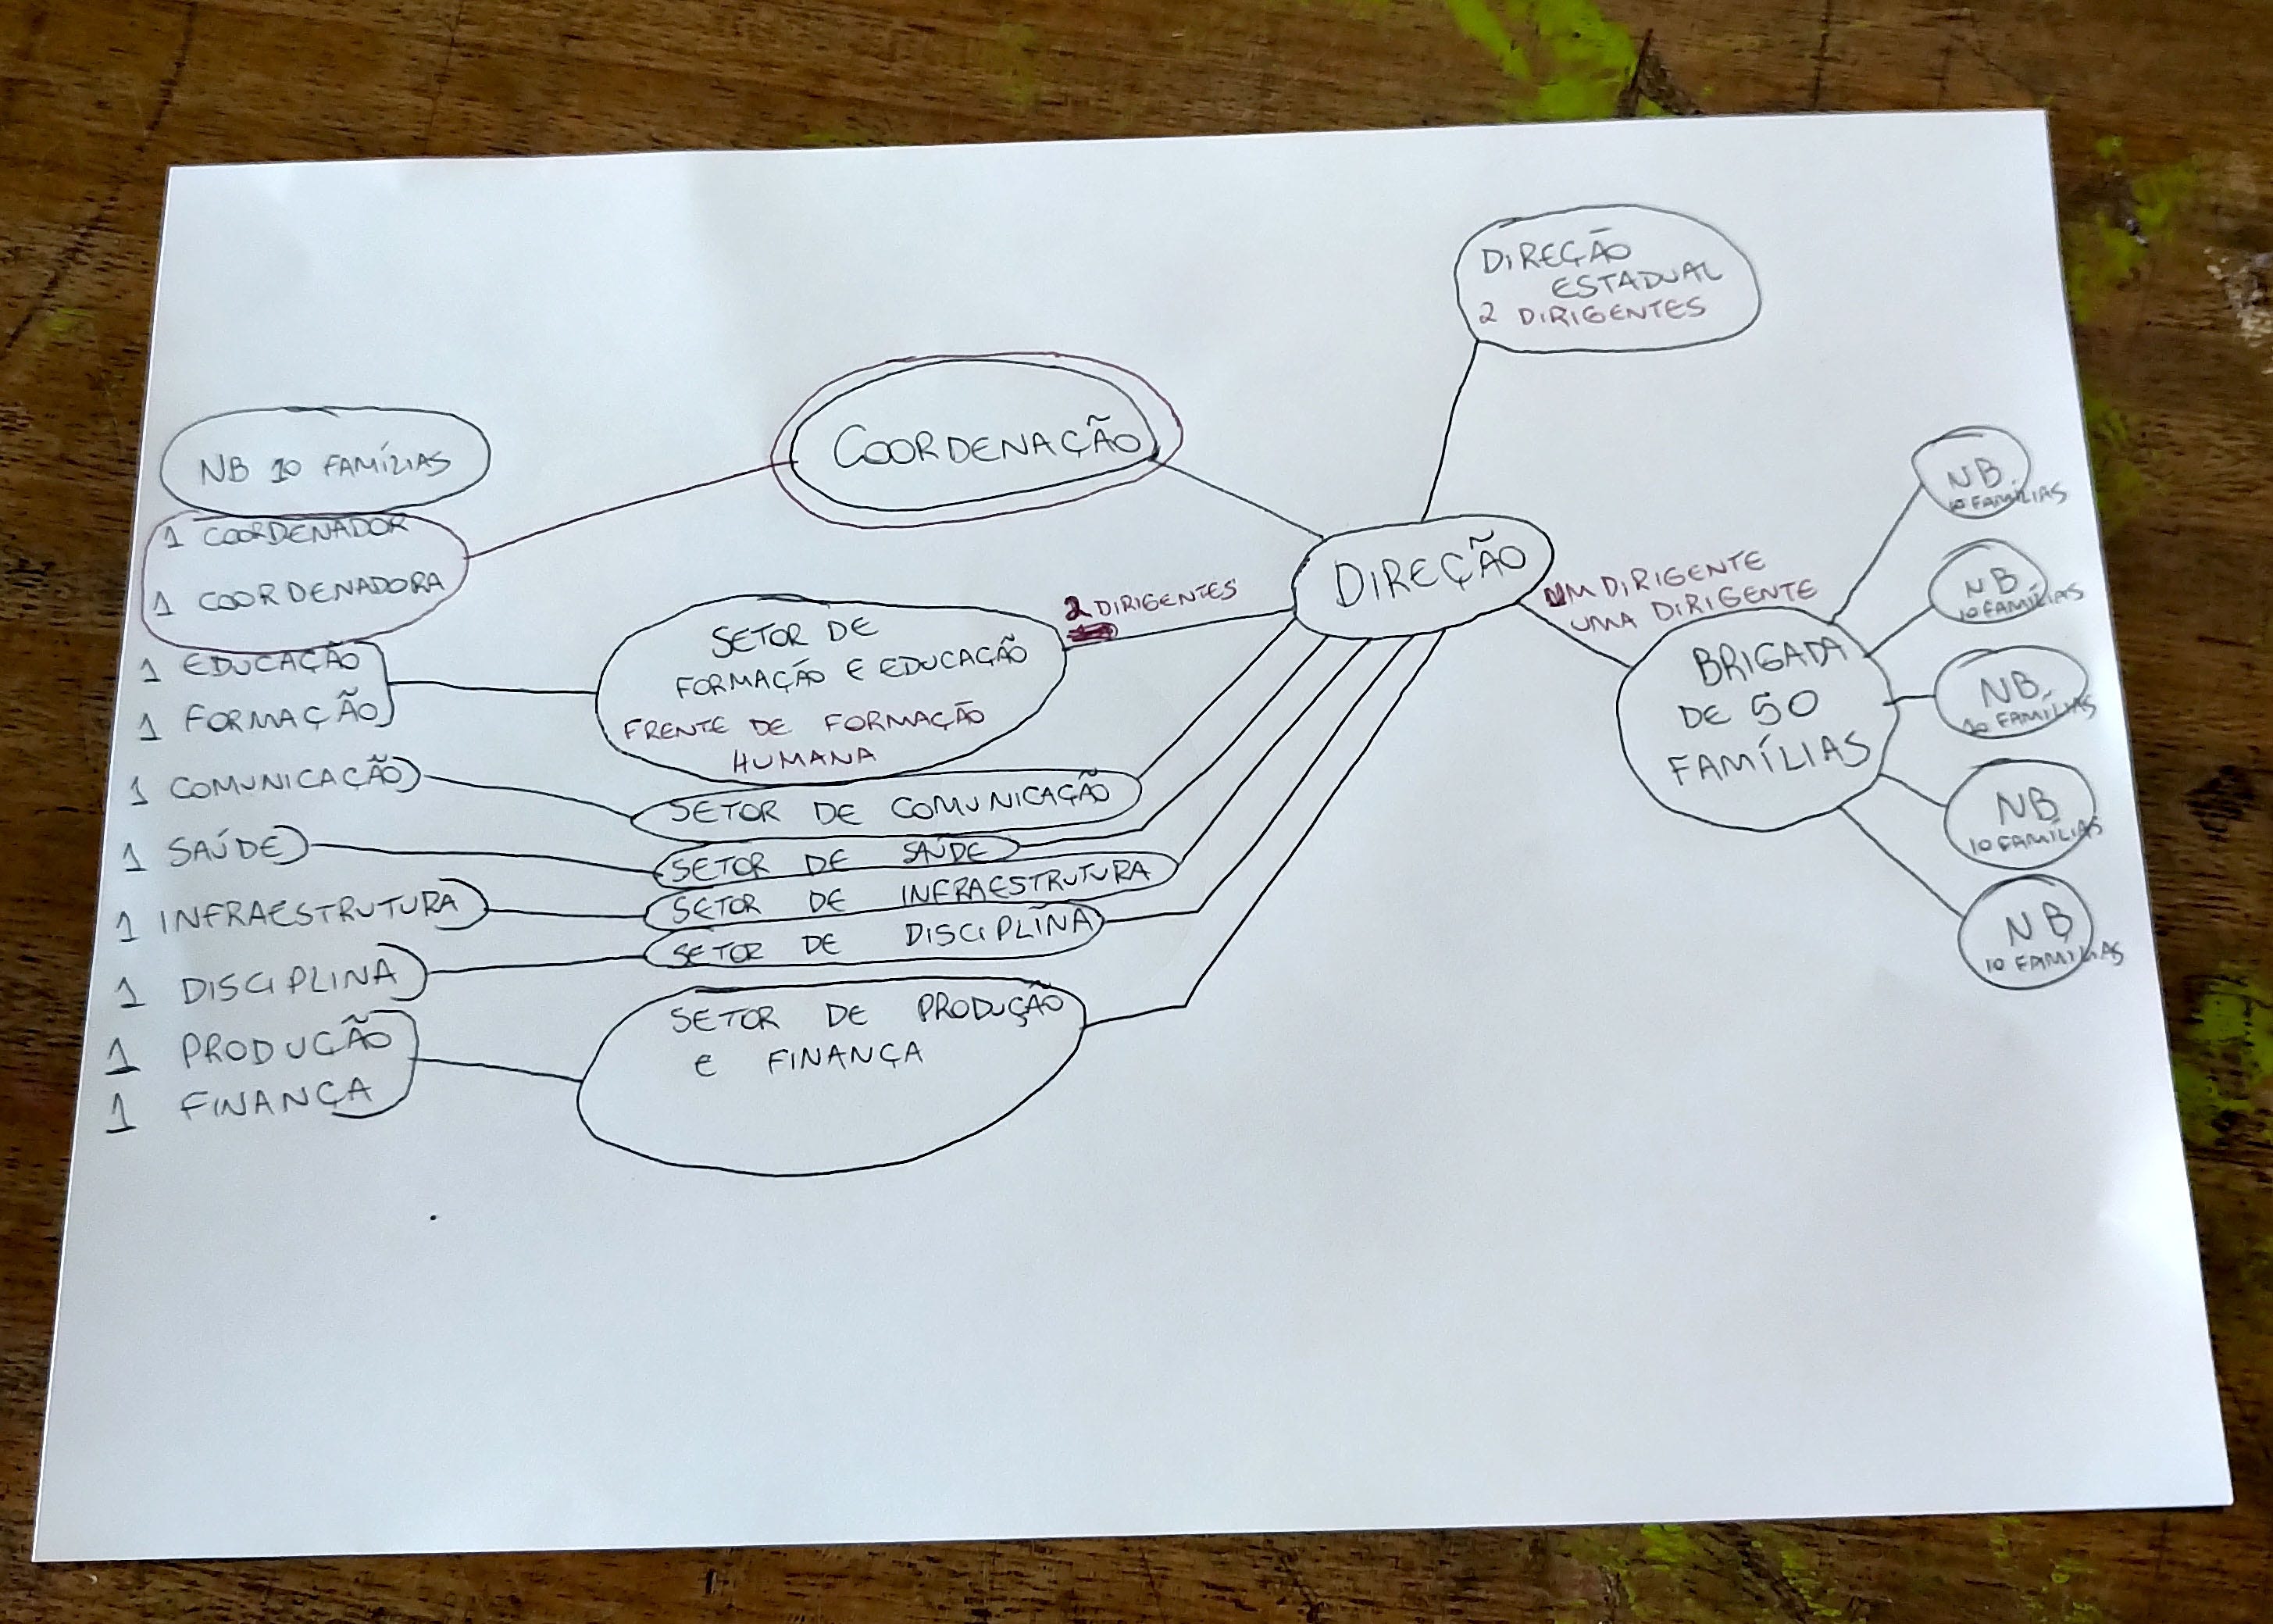 DIREÇÃO
ESTADUAL
2 DIRIGENTES
COORDENAÇÃO
NB 10 FAMÍLIAS
1 COORDENADOR
1 COORDENADORA
1 EDUCAÇÃO
1 FORMAÇÃO
1 COMUNICAÇÃO
1 SAÚDE
1 INFRAESTRUTURA
1 DISCIPLINA
1 PRODUÇÃO
1 FINANÇA
SETOR DE
FORMAÇÃO E EDUCAÇÃO
FRENTE DE FORMAÇÃO
HUMANA
SETOR DE COMUNICAÇÃO
SETOR DE SAÚDE
SETOR DE INFRAESTRUTURA
SETOR DE DISCIPLINA
SETOR DE PRODUÇÃO
e FINANÇA
2 DIRIGENTES
DIREÇÃO
UM DIRIGENTE
UMA DIRIGENTE
BRIGADA
DE 50
FAMÍLIAS
NB
10 FAMÍLIAS
NB
10 FAMÍLIAS
NB
10 FAMÍLIAS
NB
10 FAMÍLIAS
NB
10 FAMÍLIAS